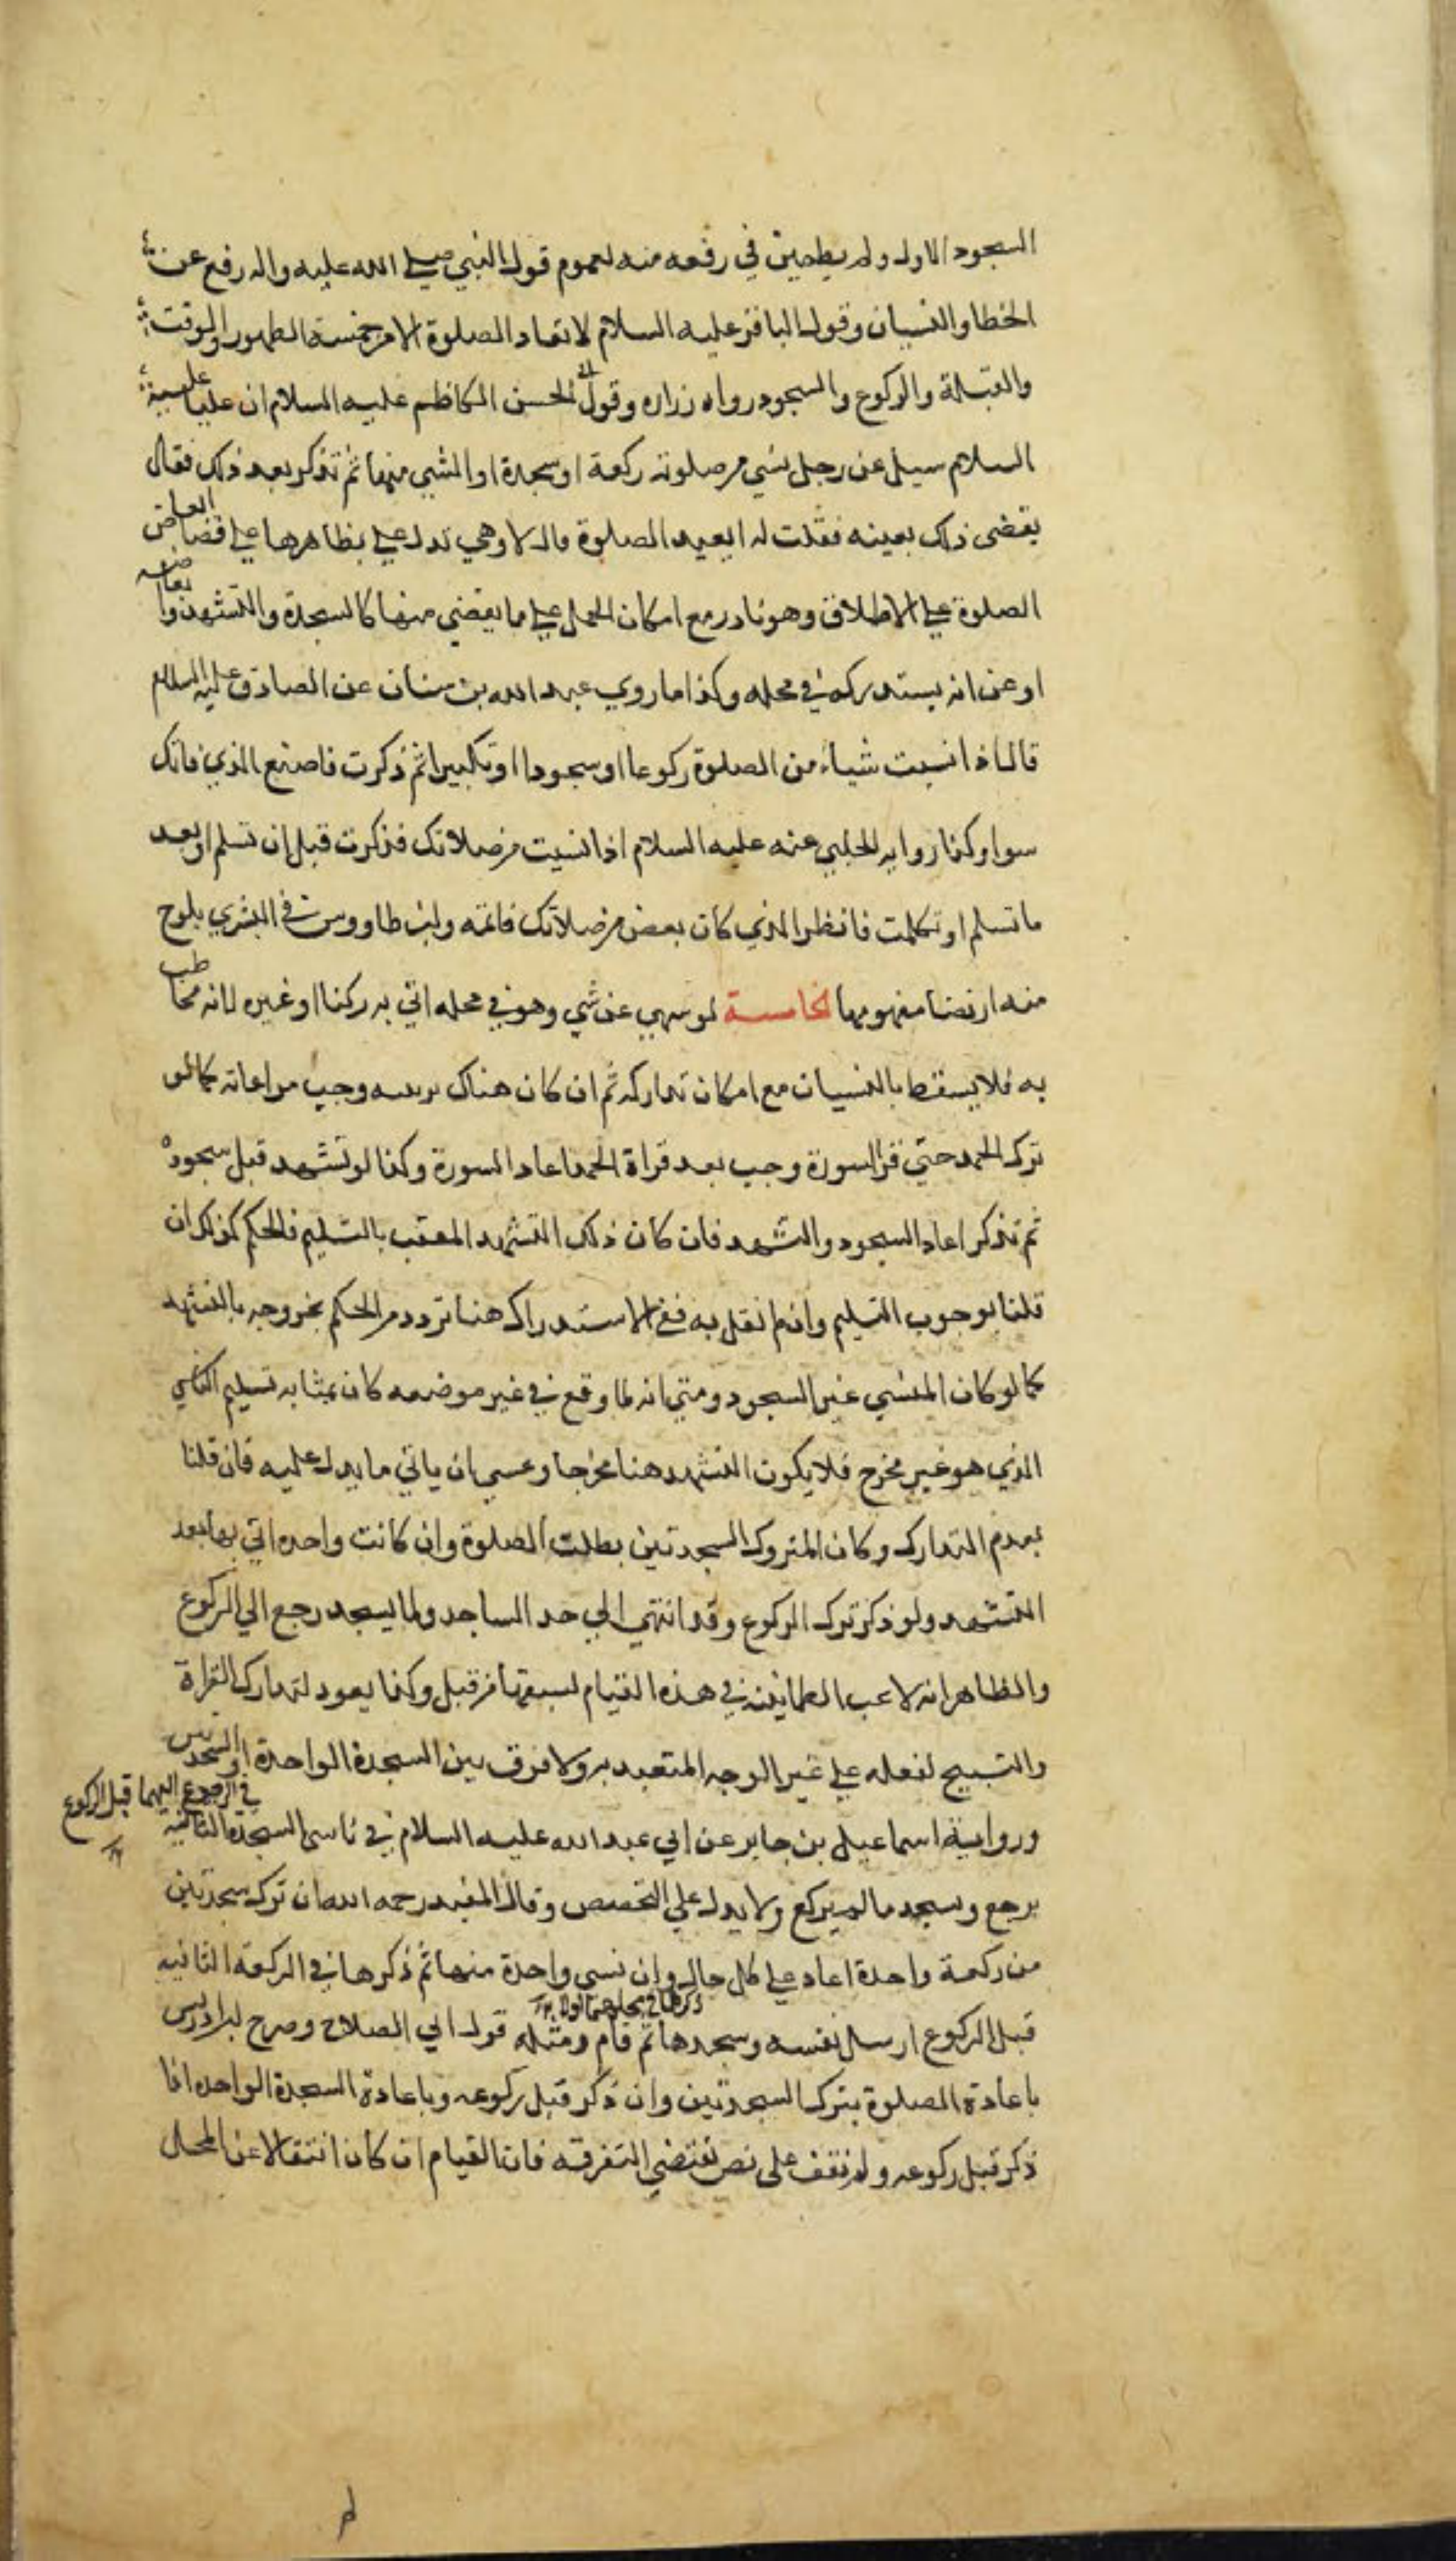 السجود الاول ولم يطمين في رفعه منه لعموم قول النبي صلى الله عليه واله رفع عن
الخطا والنسيان وقول الباقر عليه السلام لا تعاد الصلوة الا من خمسة الطهور والوقت
والقبلة والركوع والسجود رواه زراره وقول ابي الحسن الكاظم عليه السلام ان عليا عليه
السلام سيل عن رجل نسي من صلوته ركعة او سجدة او الشي منها ثم تذكر بعد ذلك فقال
يقضى ذلك بعينه فقلت له ايعيد الصلوة قال لا وهي تدل على بظاهرها على قضا ابعاض
الصلوة على الاطلاق وهو نادر مع امكان الحمل على ما يقضي منها كالسجدة والتشهد وابعاضه
او عن انه يستدركه في محله وكذا ما روي عبد الله بن سنان عن الصادق عليه السلام
قال اذا نسيت شياء من الصلوة ركوعا او سجودا او تكبيرا ثم ذكرت فاصنع الذي فاتك
سوا وكذا روايه الحلبي عنه عليه السلام اذا نسيت من صلاتك فذكرت قبل ان تسلم او بعد
ما تسلم او تكلمت فانظر الذي كان بعض من صلاتك فاتمه وابن طاووس في البشري يلوح
منه ارتضا مفهومها الخامسة لو سهي عن شي وهو في محله اتي به ركنا او غيره لانه مخاطب
به فلا يسقط بالنسيان مع امكان تداركه ثم ان كان هناك وجب مراعاته كما لو
ترك الحمد حتي قرا السورة وجب بعد قراة الحمد اعاد السورة وكذا لو تشهد قبل سجوده
ثم تذكر اعاد السجود والتشهد فان كان ذلك التشهد المعقب بالتسليم فالحكم كذلك ان
قلنا بوجوب التسليم وان لم نقل به ففي الاستدراك هنا تردد من الحكم بخروجه بالتشهد
كما لو كان المنسي غير السجود ومن انه لما وقع في غير موضعه كان بمثابه تسليم الناسي
الذي هو غير مخرج فلا يكون التشهد هنا مخرجا وعسي ان ياتي ما يدل عليه فان قلنا
بعدم التدارك وكان المتروك السجدتين بطلت الصلوة وان كانت واحده اتي بها بعد
التشهد ولو ذكر ترك الركوع وقد انتهي الي حد الساجد ولما يسجد رجع الي الركوع
والظاهر انه لا يجب الطمانينه في هذه القيام لسبقها من قبل وكذا يعود لتدارك القراة
والتسبيح لفعله علي غير الوجه المتعبد به ولا فرق بين السجدة الواحدة او السجدتين
في الرجوع اليهما قبل الركوع
ورواية اسماعيل بن جابر عن ابي عبد الله عليه السلام في ناسي السجدة الثانيه
يرجع ويسجد ما لم يركع ولا يدل علي التخصص وقال المفيد رحمه الله ان ترك سجدتين
من ركعة واحدة اعاد على كل حال وان نسي واحدة منها ثم ذكرها في الركعة الثانيه
قبل الركوع ارسل نفسه وسجدها ثم قام ومثله قول ابي الصلاح وصرح ابن ادريس
باعادة الصلوة بترك السجدتين وان ذكر قبل ركوعه وباعادة السجدة الواحده اذا
ذكر قبل ركوعه ولم نقف على نص يقتضي التفرقه فان القيام ان كان انتقالا عن المحل